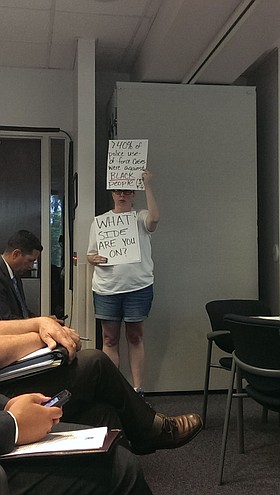 >40% of
police use-
of-force cases
were against
BLACK
people
WHAT
SIDE
ARE YOU
ON?